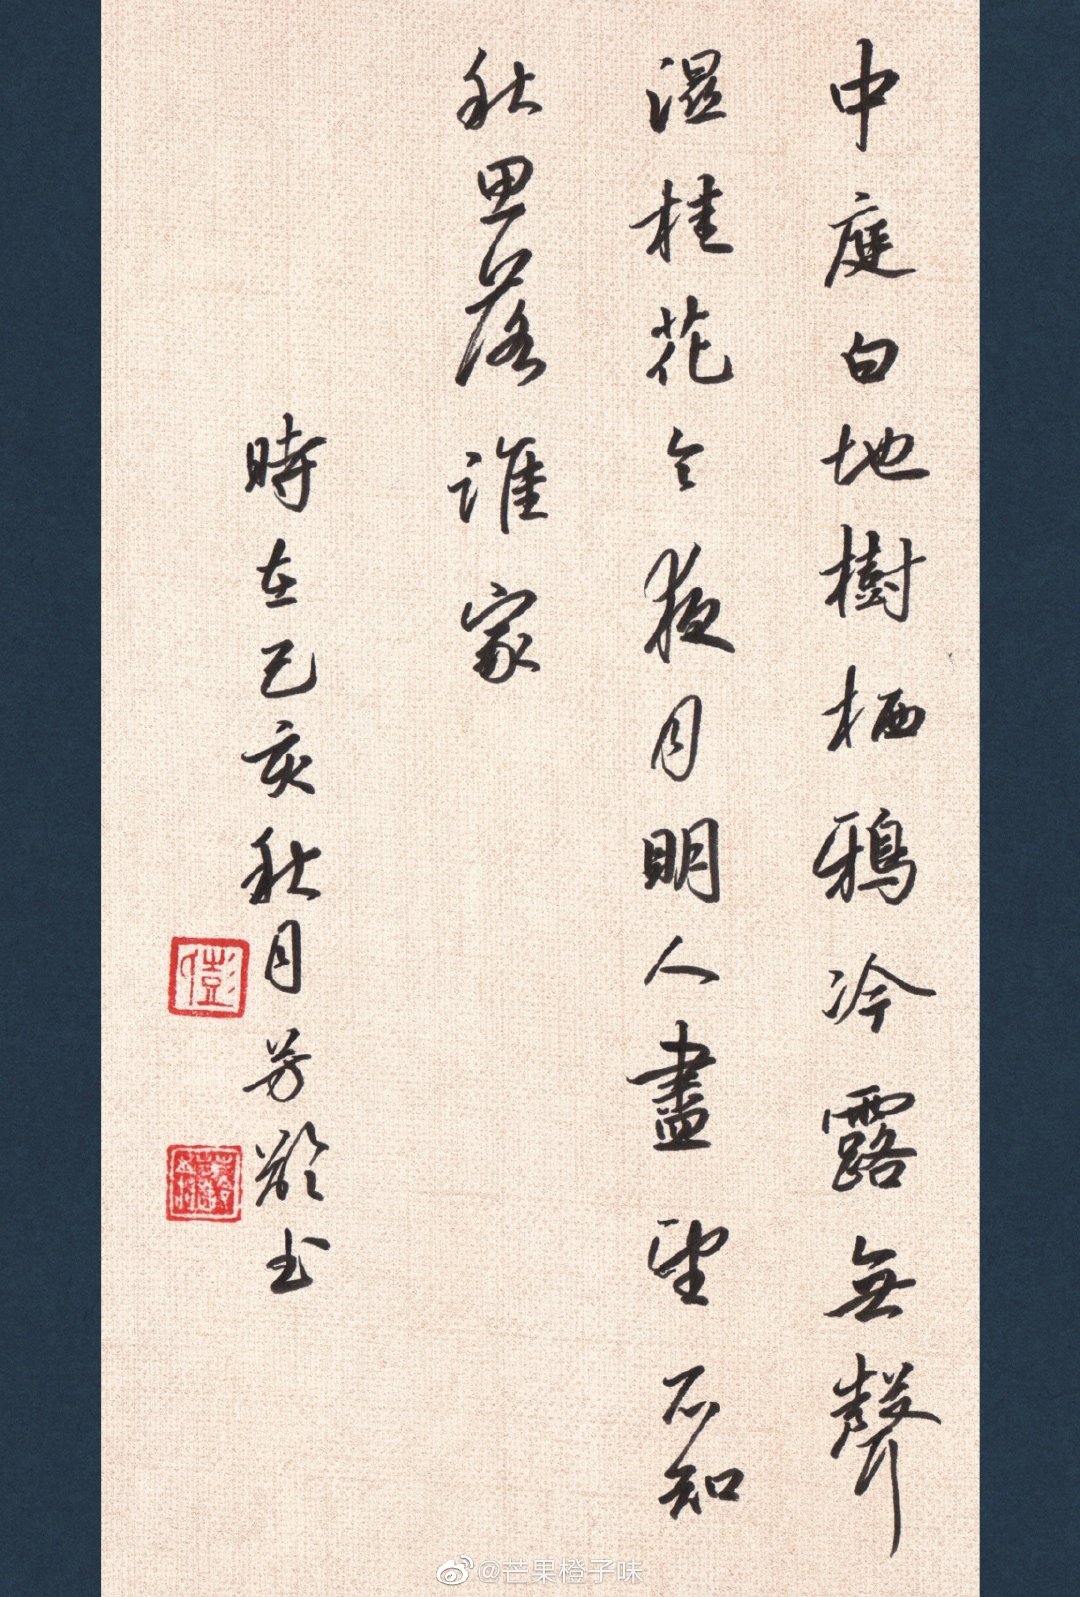 中庭白地樹栖鴉冷露無聲
濕桂花今夜月明人盡望不知
秋思落誰家
時在己亥秋月芳齡书
@芒果橙子味